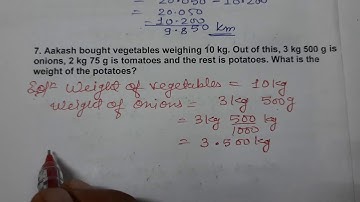 = 20.050
= 10.200
9.850 km
7. Aakash bought vegetables weighing 10 kg. Out of this, 3 kg 500 g is
onions, 2 kg 75 g is tomatoes and the rest is potatoes. What is the
weight of the potatoes?
Sol:- Weight of vegetables = 10kg
Weight of onions = 3kg 500g
= 3kg 500/1000 kg
= 3.500 kg